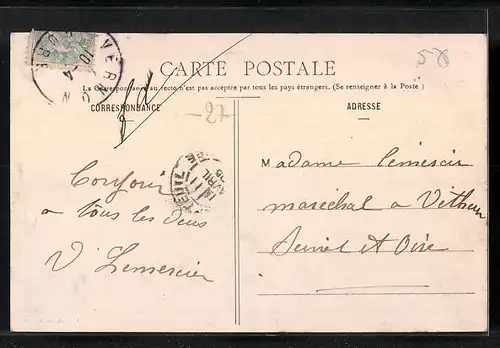 VERNO
10-4
EURE
58
CARTE POSTALE
La Correspondance au recto n'est pas acceptée par tous les pays étrangers. (Se renseigner à la Poste.)
CORRESPONDANCE
ADRESSE
-27
11
AVRIL
05
Bonjour
a tous les deus
V Lemercier
Madame Lemercier
marechal a Vetheuil
Seine et Oise